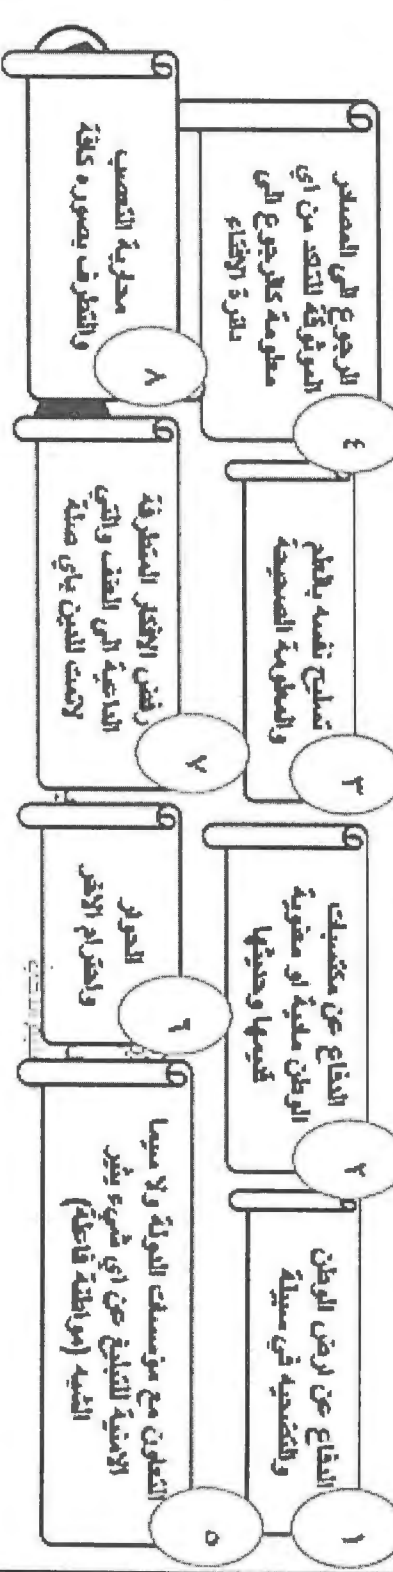 ١
الدفاع عن ارض الوطن
والتضحيه في سبيلة
٢
الدفاع عن مكتسبات
الوطن مادية او معنوية
قيمها وحديثها
٣
تسليح نفسه بالعلم
والمعلومة الصحيحة
٤
الرجوع الى المصادر
الموثوقة للتعد من اي
معلومة كالرجوع الى
دائرة الافتاء
٥
التعاون مع مؤسسات الدولة ولا سيما
الامنية للتبليغ عن اي شيء يثير
الشبه (مواطنة فاعلة)
٦
الحوار
واحترام الاخر
٧
رفض الافكار المتطرفة
الداعية الى العنف والتي
لاتمت للدين باي صلة
٨
محاربة التعصب
والتطرف بصوره كافة